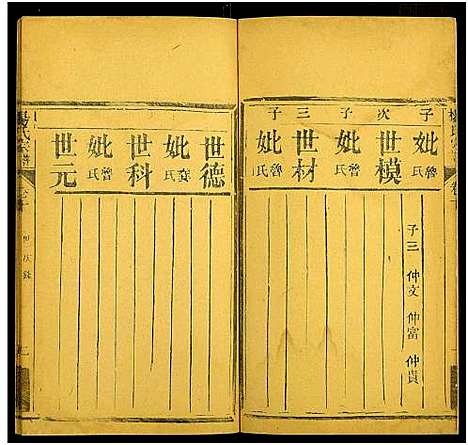 楊氏宗
子 次 子 三 子
妣魯氏
子三 仲文 仲富 仲貴
世模
妣魯氏
世材
妣魯氏
世德
妣龔氏
世科
妣魯氏
世元
楊氏宗譜